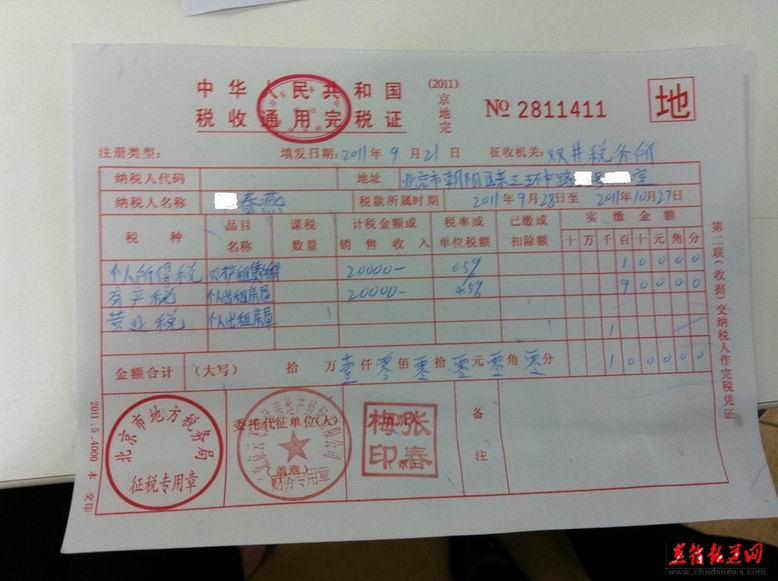 中华人民共和国
税收通用完税证
(2011)
京地完
№ 2811411
地
注册类型:
填发日期: 2011 年 9 月 21 日
征收机关: 双井税务所
纳税人代码
地址
北京市朝阳区东三环中路 号 室
纳税人名称
春燕
税款所属时期
2011 年 9 月 28 日至 2011 年 10 月 27 日
税种
品目名称
课税数量
计税金额或销售收入
税率或单位税额
已缴或扣除额
实缴金额
十万千百十元角分
个人所得税
20000—
0.5%
10000
房产税 个人出租房屋
20000—
4.5%
90000
营业税 个人出租房屋
金额合计
(大写) 拾 万 壹 仟 零 佰 零 拾 零 元 零 角 零 分
100000
北京市地方税务局
征税专用章
委托代征单位(人)
(盖章)
财务专用章
张春梅印
备注
第二联(收据)交纳税人作完税凭证
2011.5.4000 本
www.chndsnews.com